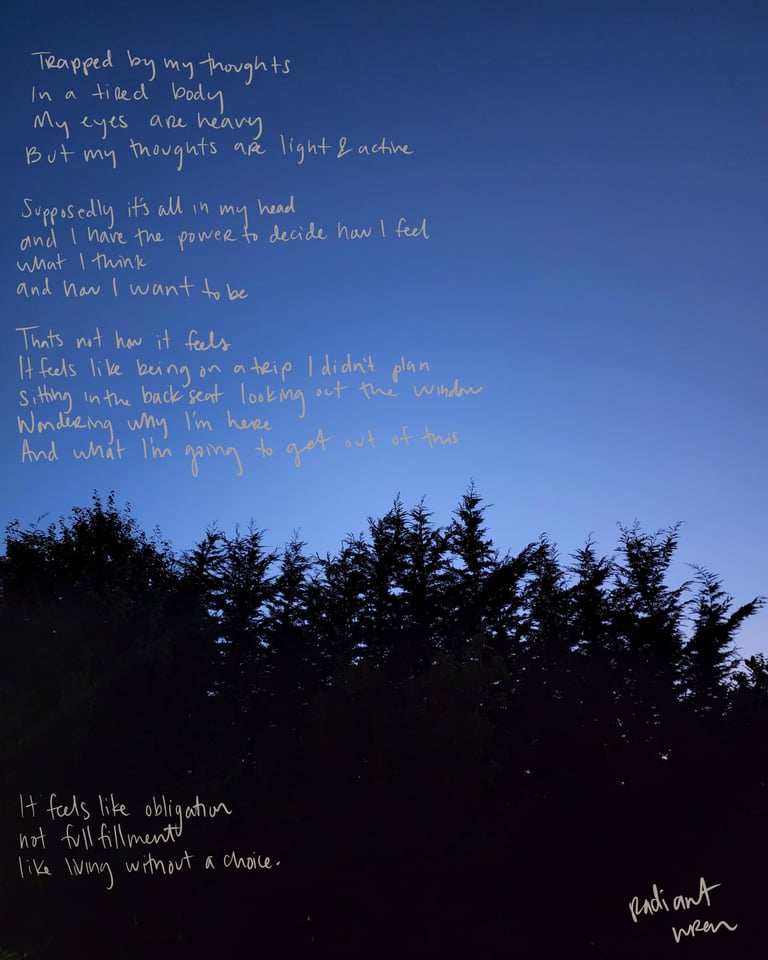 Trapped by my thoughts
In a tired body
My eyes are heavy
But my thoughts are light & active
Supposedly it's all in my head
and I have the power to decide how I feel
what I think
and how I want to be
Thats not how it feels
It feels like being on a trip I didn't plan
sitting in the back seat looking out the window
Wondering why I'm here
And what I'm going to get out of this
It feels like obligation
not fullfillment
like living without a choice.
Radiant
wren